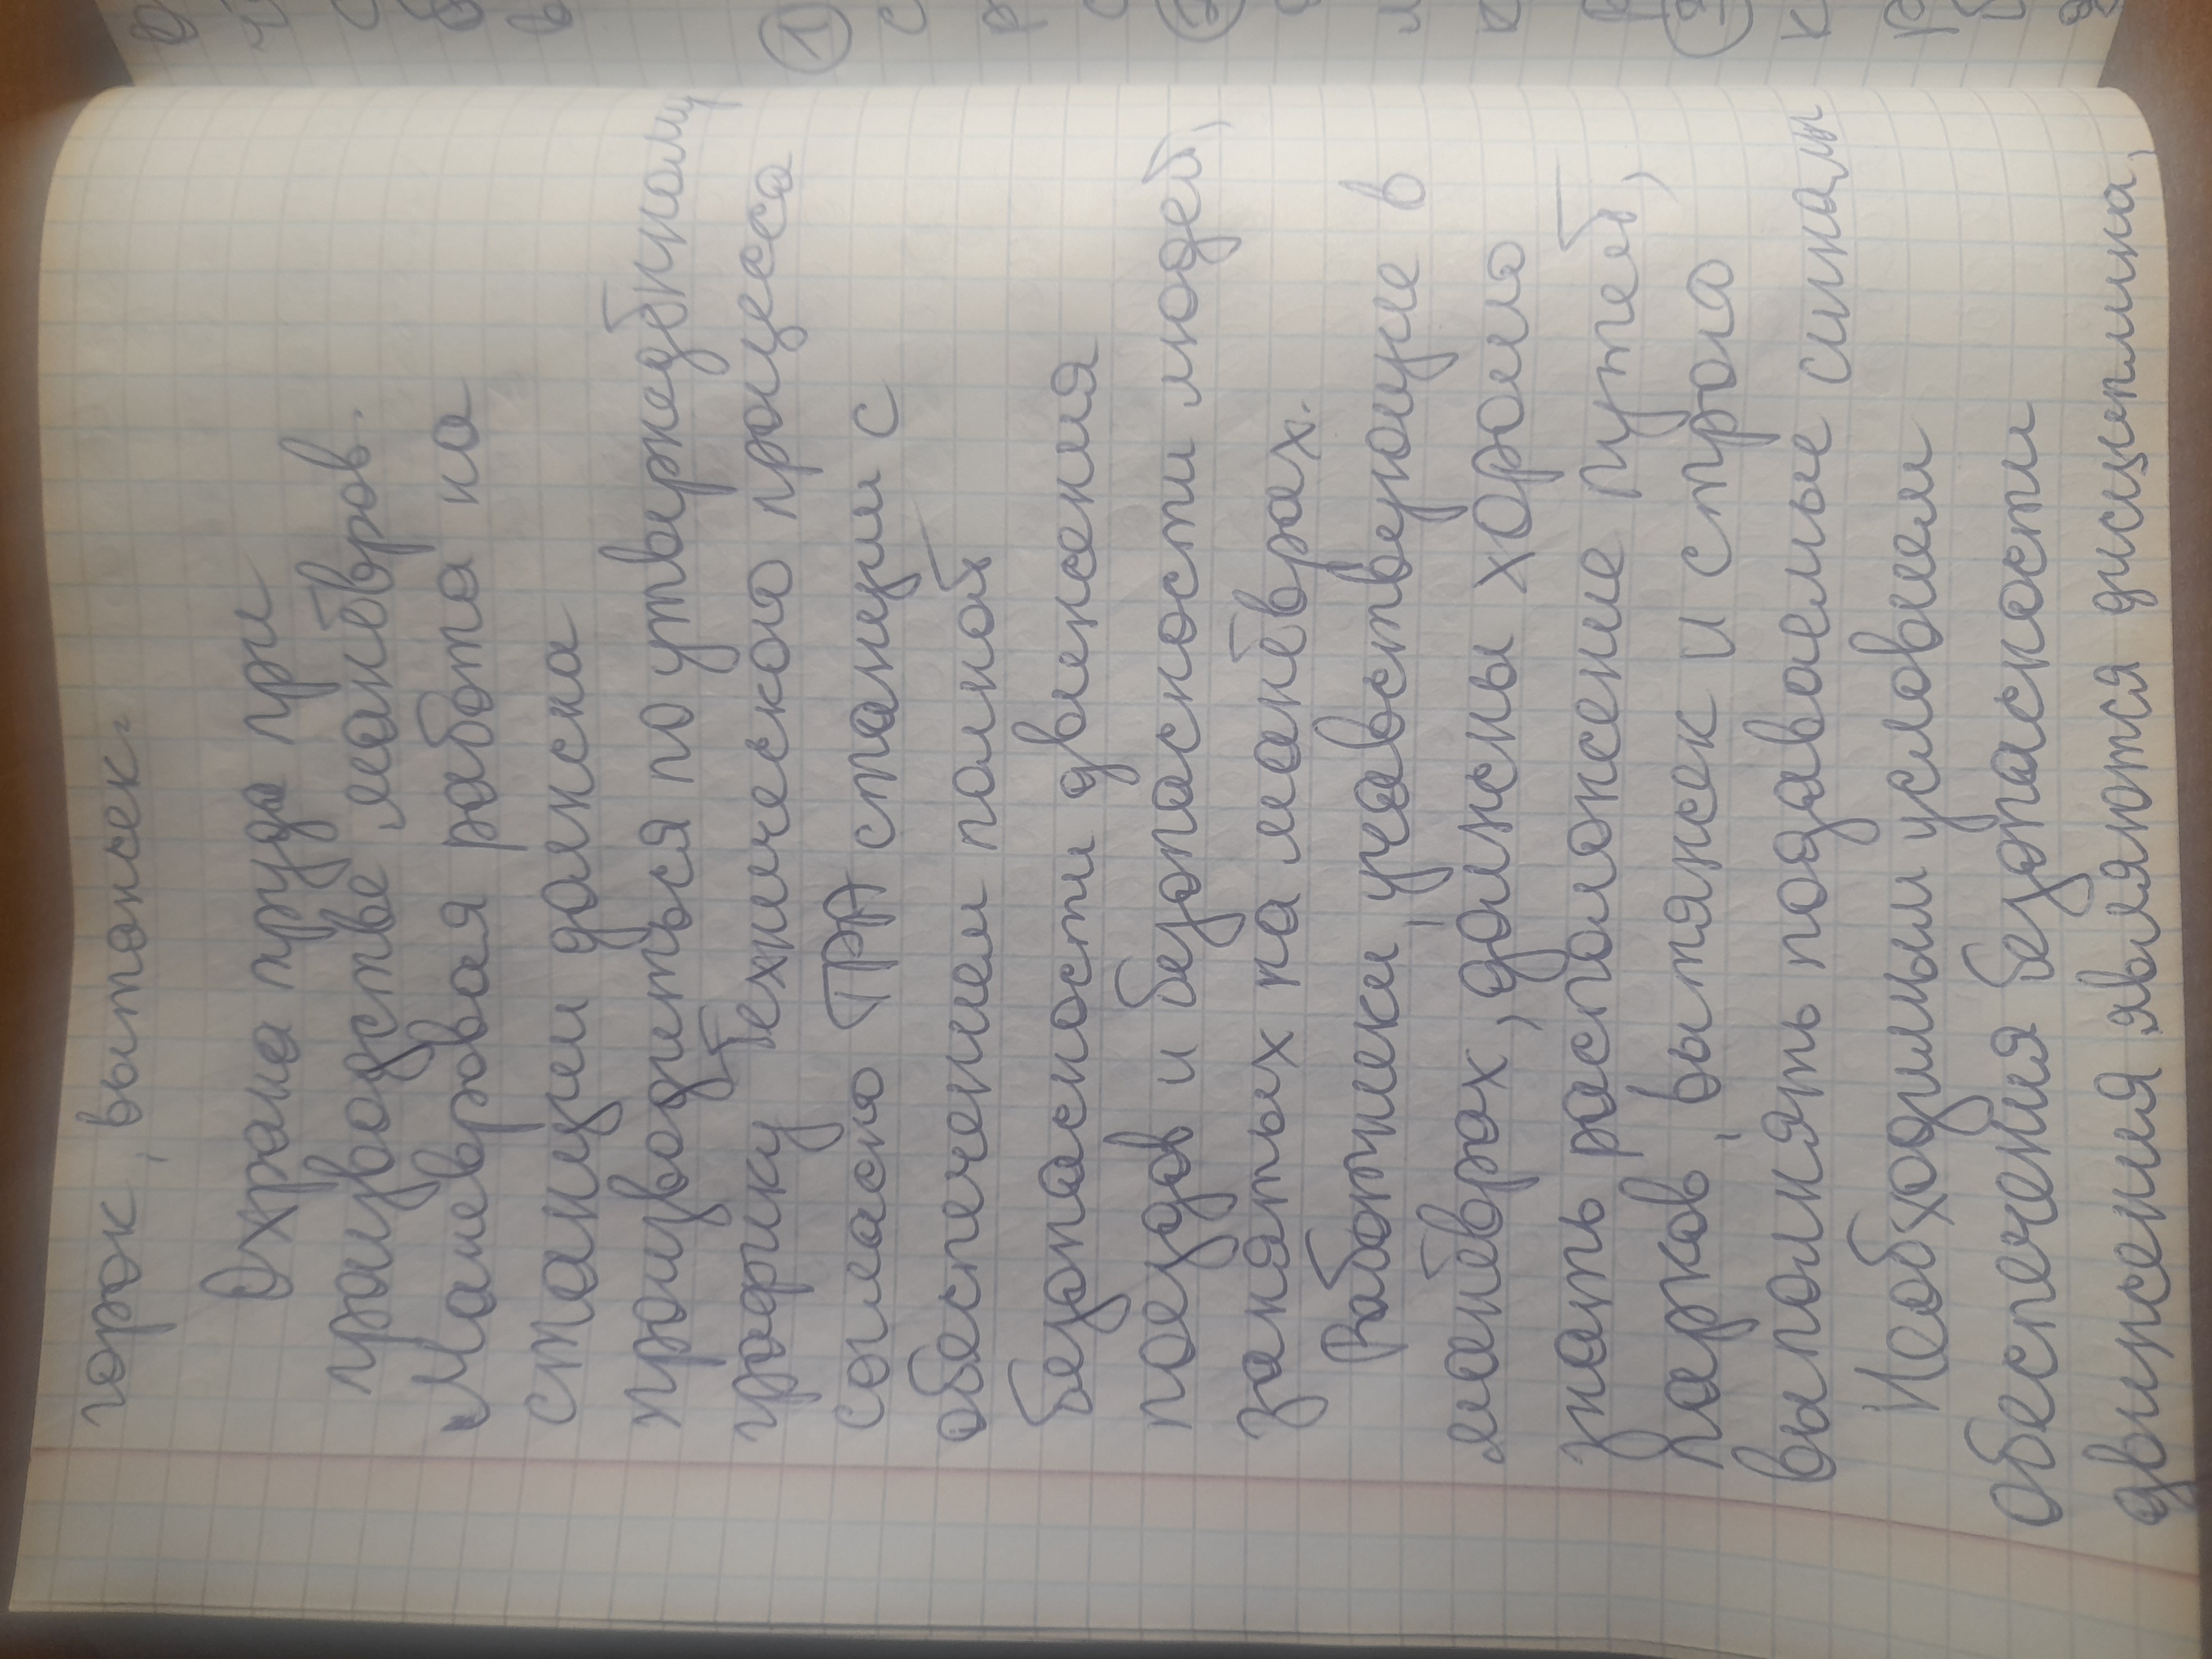 горок, вытяжек.
Охрана труда при
производстве манёвров.
Маневровая работа на
станции должна
производиться по утверждённому
графику технического процесса
согласно ТРА станции с
обеспечением полной
безопасности движения
поездов и безопасности людей,
занятых на манёврах.
Работники, учавствующие в
манёврах, должны хорошо
знать расположение путей,
парков, вытяжек и строго
выполнять подаваемые сигналы
Необходимым условием
обеспечения безопасности
движения являются дисциплина,